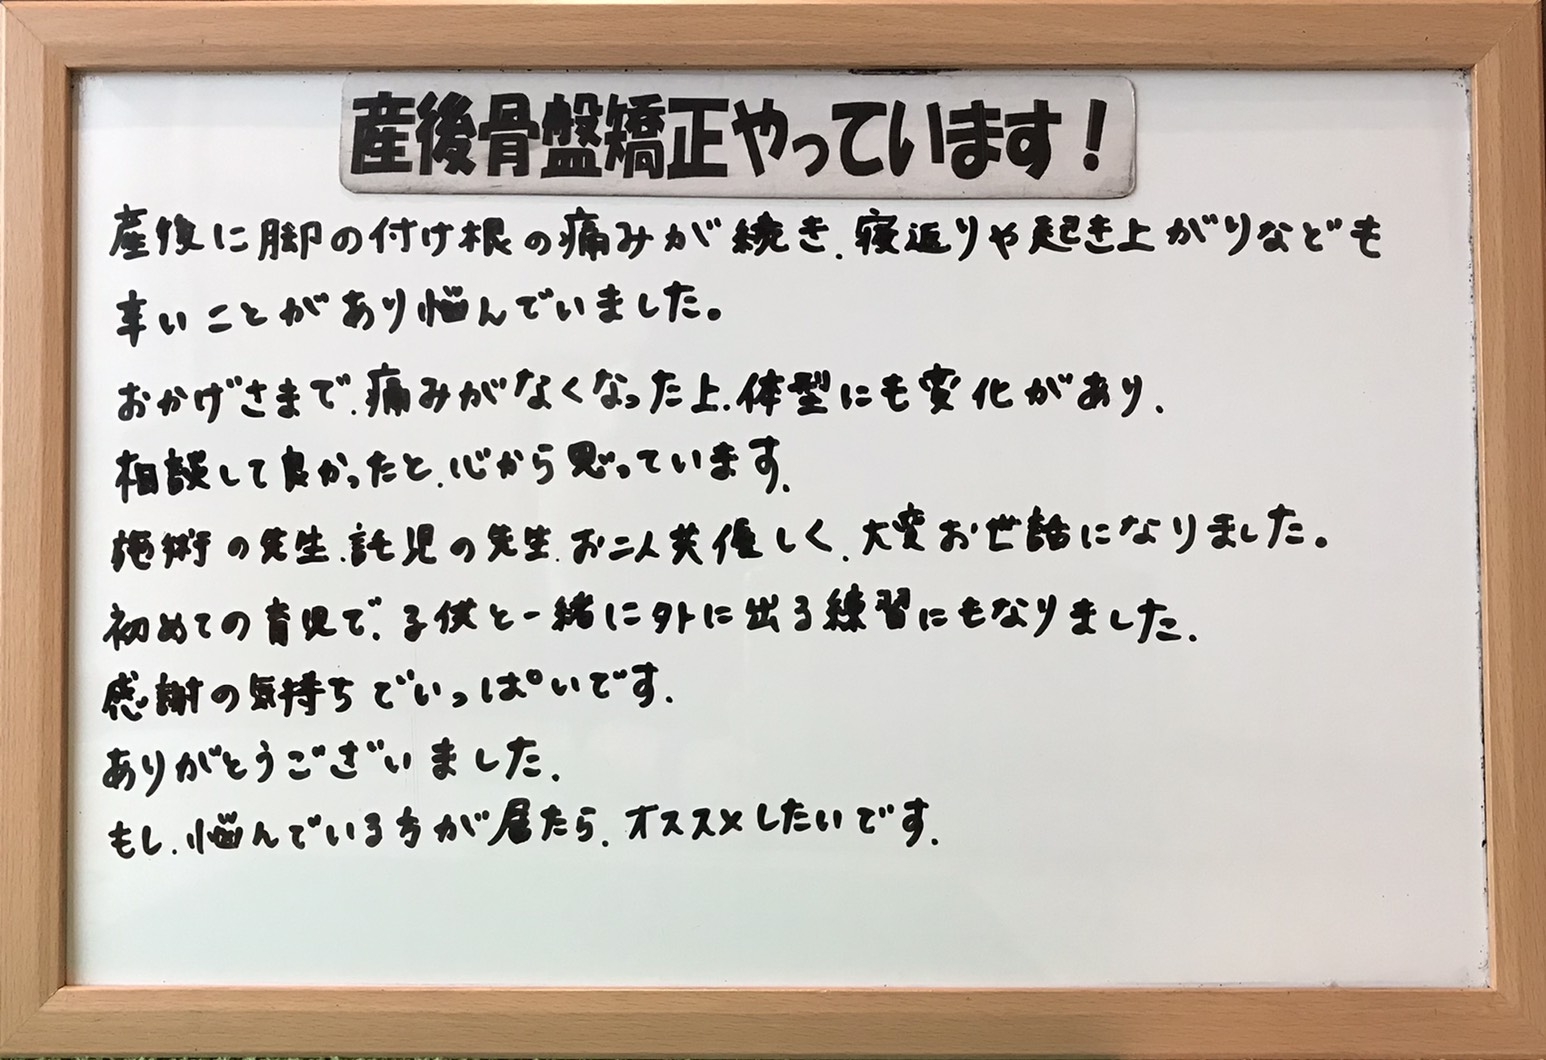 産後骨盤矯正やっています!
産後に脚の付け根の痛みが続き、寝返りや起き上がりなども
辛いことがあり悩んでいました。
おかげさまで、痛みがなくなった上、体型にも変化があり、
相談して良かったと、心から思っています。
施術の先生、託児の先生、お二人共優しく、大変お世話になりました。
初めての育児で、子供と一緒に外に出る練習にもなりました。
感謝の気持ちでいっぱいです。
ありがとうございました。
もし、悩んでいる方が居たら、オススメしたいです。